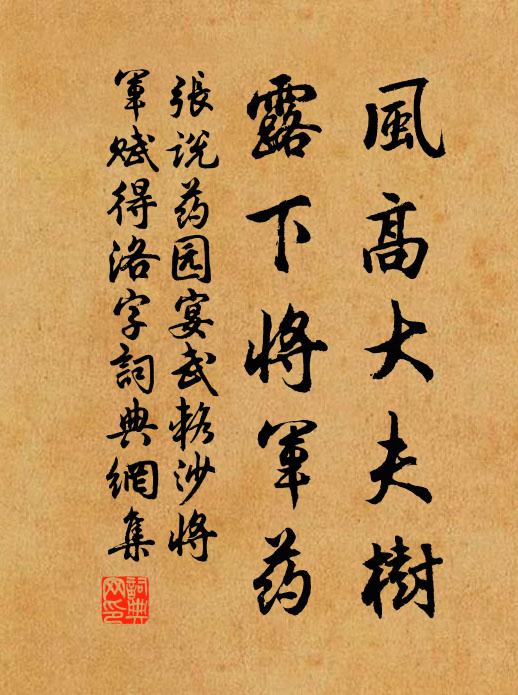 風高大夫樹
露下将軍药
張说药园宴武輅沙将
軍赋得洛字詞典網集
詞典网印